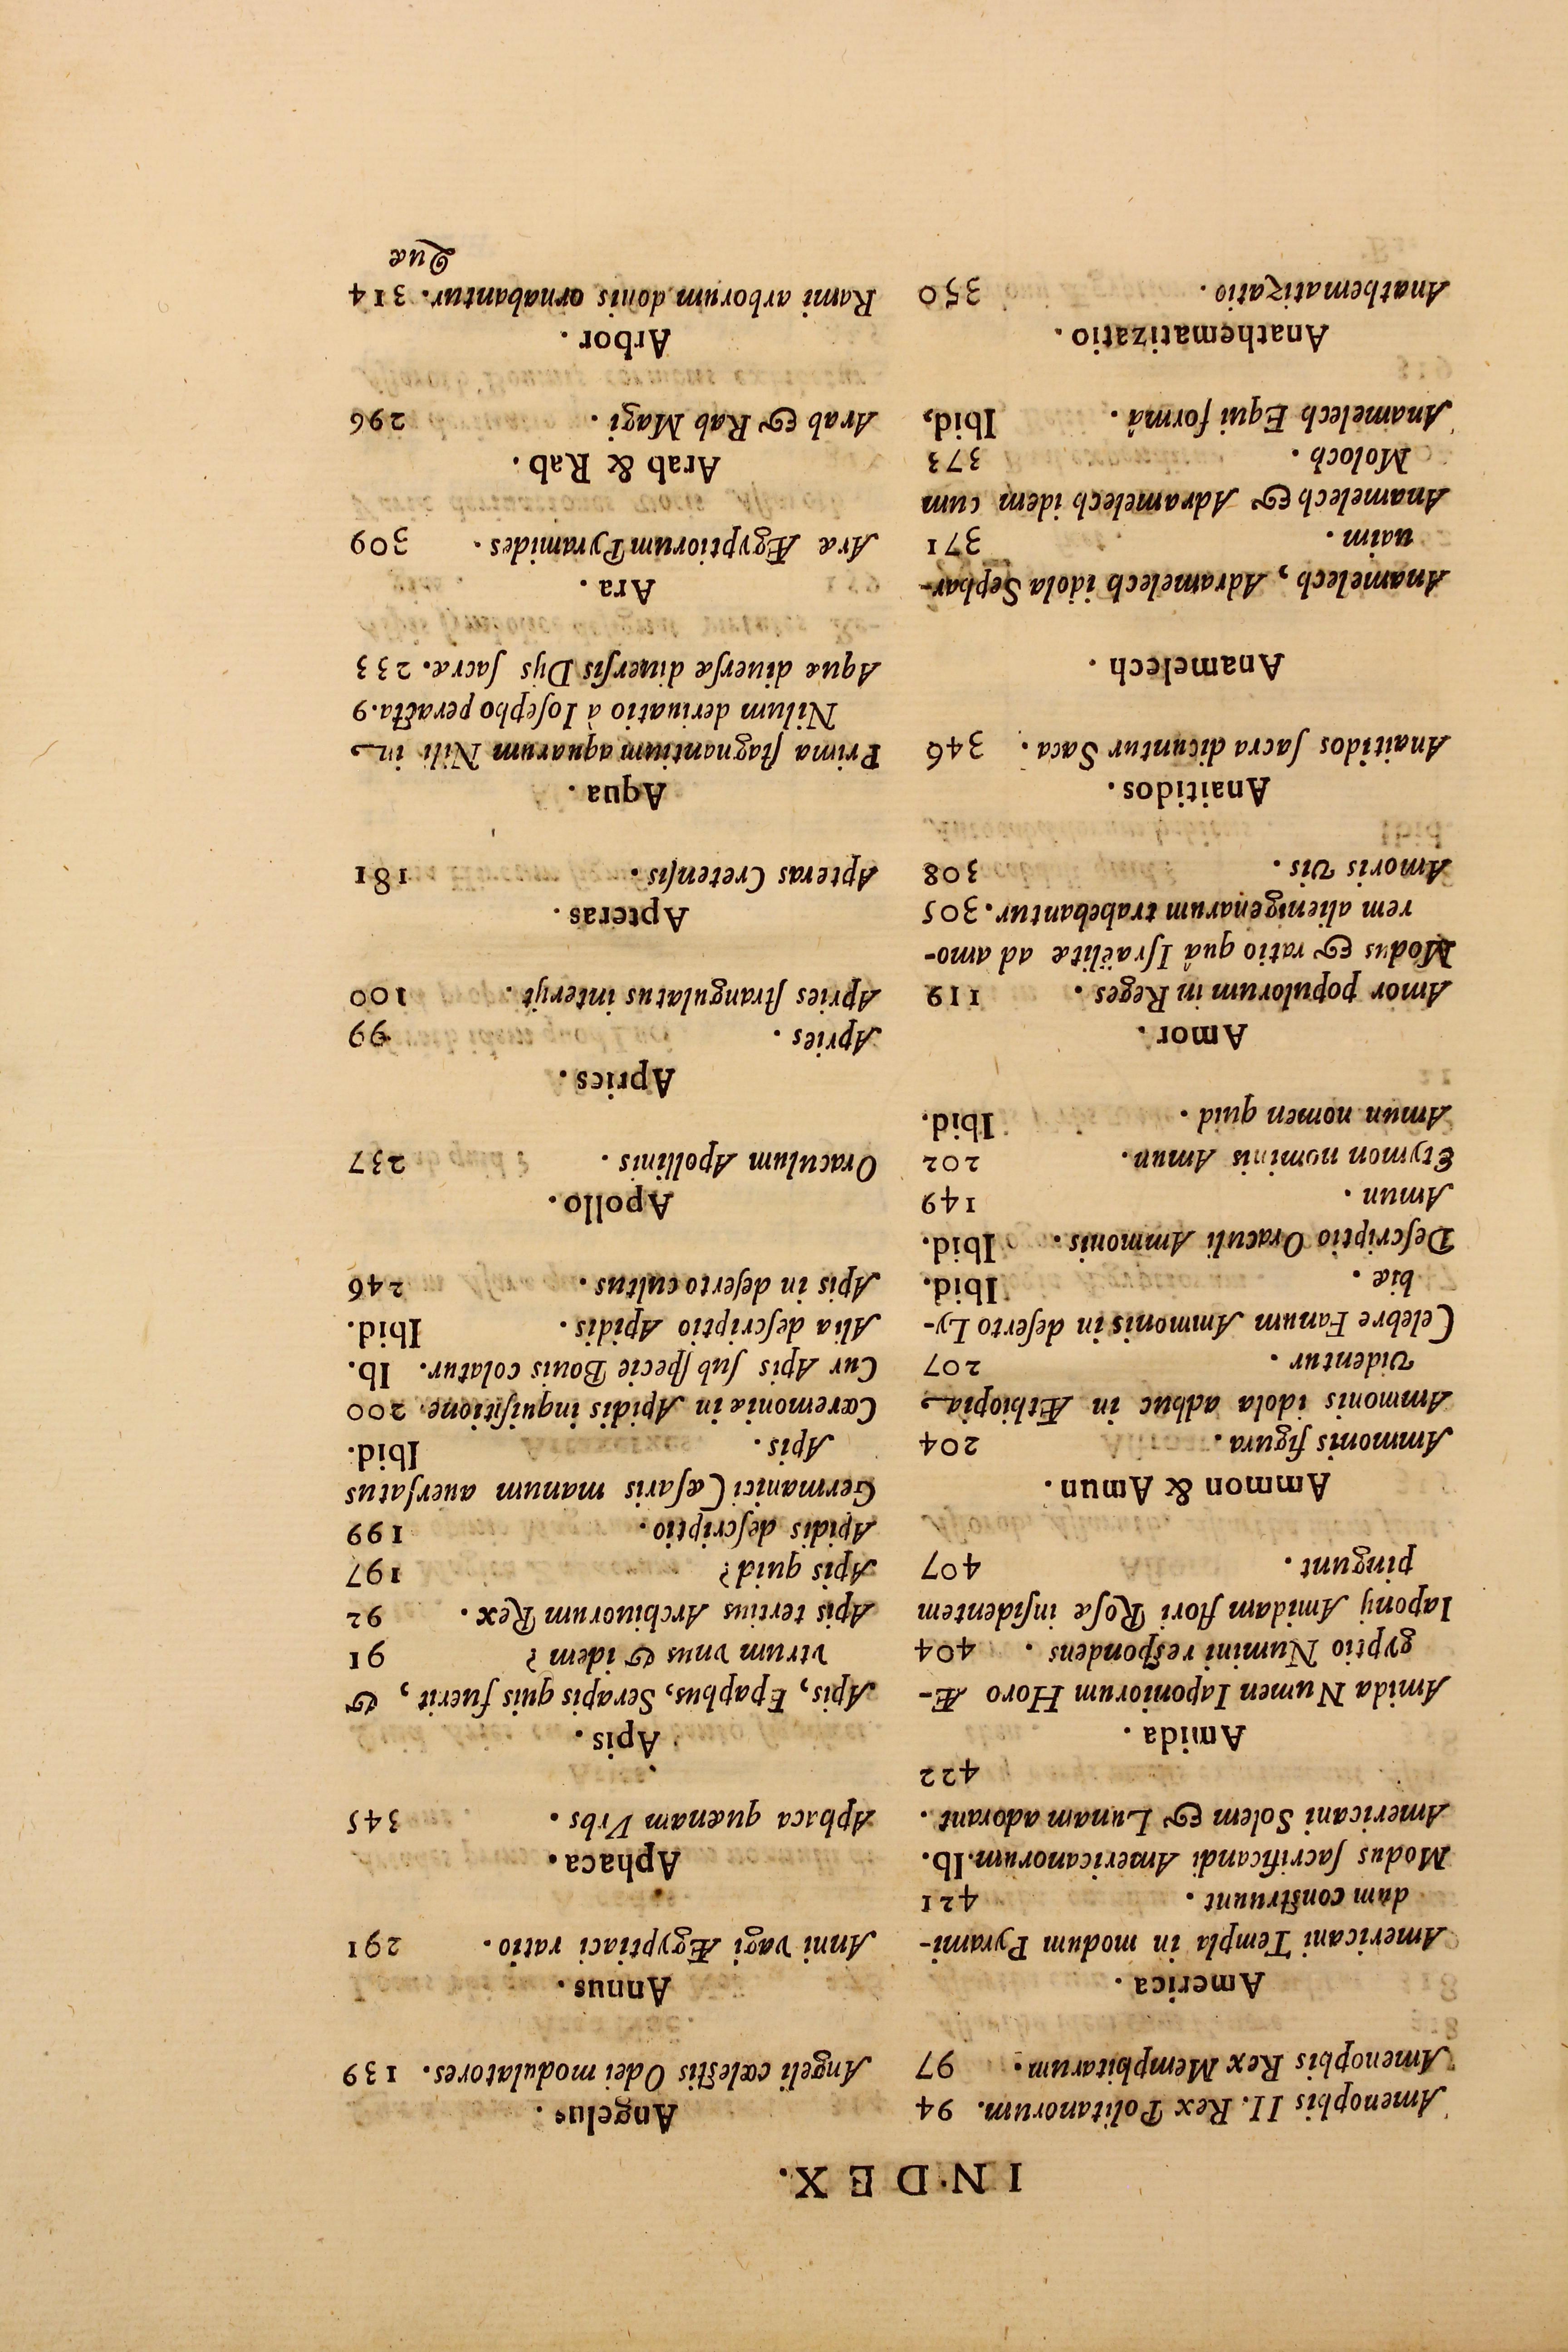 INDEX.
Amenophis II. Rex Politanorum. 94
Amenophis Rex Memphitarum. 97
America.
Americani Templa in modum Pyrami-
dum conſtruunt. 421
Modus ſacrificandi Americanorum. Ib.
Americani Solem & Lunam adorant.
422
Amida.
Amida Numen Iaponiorum Horo Æ-
gyptio Numini reſpondens. 404
Iaponij Amidam flori Roſæ inſidentem
pingunt. 407
Ammon & Amun.
Ammonis figura. 204
Ammonis idola adhuc in Æthiopia
videntur. 207
Celebre Fanum Ammonis in deſerto Ly-
biæ. Ibid.
Deſcriptio Oraculi Ammonis. Ibid.
Amun. 149
Etymon nominis Amun. 202
Amun nomen quid. Ibid.
Amor.
Amor populorum in Reges. 119
Modus & ratio quâ Iſraëlitæ ad amo-
rem alienigenarum trahebantur. 305
Amoris vis. 308
Anaitidos.
Anaitidos ſacra dicuntur Saca. 346
Anamelech.
Anamelech, Adramelech idola Sephar-
uaim. 371
Anamelech & Adramelech idem cum
Moloch. 373
Anamelech Equi formâ. Ibid,
Anathematizatio.
Anathematizatio. 350
Angelus.
Angeli cæleſtis Odei modulatores. 139
Annus.
Anni vagi Ægyptiaci ratio. 291
Aphaca.
Aphaca quænam Vrbs. 345
Apis.
Apis, Epaphus, Serapis quis fuerit, &
vtrum vnus & idem? 91
Apis tertius Archiuorum Rex. 92
Apis quid? 197
Apidis deſcriptio. 199
Germanici Cæſaris manum auerſatus
Apis. Ibid.
Cæremoniæ in Apidis inquiſitione. 200
Cur Apis ſub ſpecie Bouis colatur. Ib.
Alia deſcriptio Apidis. Ibid.
Apis in deſerto cultus. 246
Apollo.
Oraculum Apollinis. 237
Apries.
Apries. 99
Apries ſtrangulatus interijt. 100
Apteras.
Apteras Cretenſis. 181
Aqua.
Prima ſtagnantium aquarum Nili in
Nilum deriuatio à Ioſepho peracta. 9
Aquæ diuerſæ diuerſis Dijs ſacræ. 233
Ara.
Aræ Ægyptiorum Pyramides. 309
Arab & Rab.
Arab & Rab Magi. 296
Arbor.
Rami arborum donis ornabantur. 314
Quæ